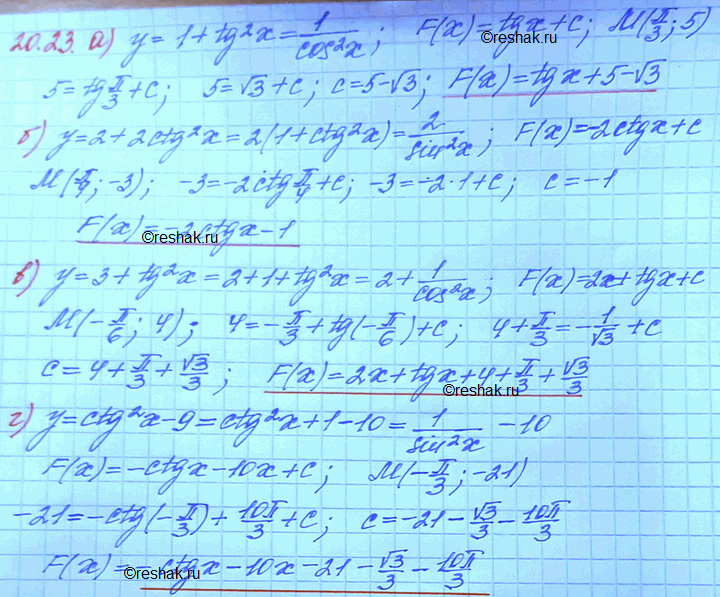 20.23. а) y = 1 + tg²x = 1/cos²x; F(x) = tgx + c; M(π/3; 5)
5 = tg π/3 + c; 5 = √3 + c; c = 5 - √3; F(x) = tgx + 5 - √3
б) y = 2 + 2ctg²x = 2(1 + ctg²x) = 2/sin²x; F(x) = -2ctgx + c
M(π/4; -3); -3 = -2ctg π/4 + c; -3 = -2·1 + c; c = -1
F(x) = -2ctgx - 1
©reshak.ru
в) y = 3 + tg²x = 2 + 1 + tg²x = 2 + 1/cos²x; F(x) = 2x + tgx + c
M(-π/6; 4); 4 = -π/3 + tg(-π/6) + c; 4 + π/3 = -1/√3 + c
c = 4 + π/3 + √3/3; F(x) = 2x + tgx + 4 + π/3 + √3/3
©reshak.ru
г) y = ctg²x - 9 = ctg²x + 1 - 10 = 1/sin²x - 10
F(x) = -ctgx - 10x + c; M(-π/3; -21)
-21 = -ctg(-π/3) + 10π/3 + c; c = -21 - √3/3 - 10π/3
F(x) = -ctgx - 10x - 21 - √3/3 - 10π/3
©reshak.ru